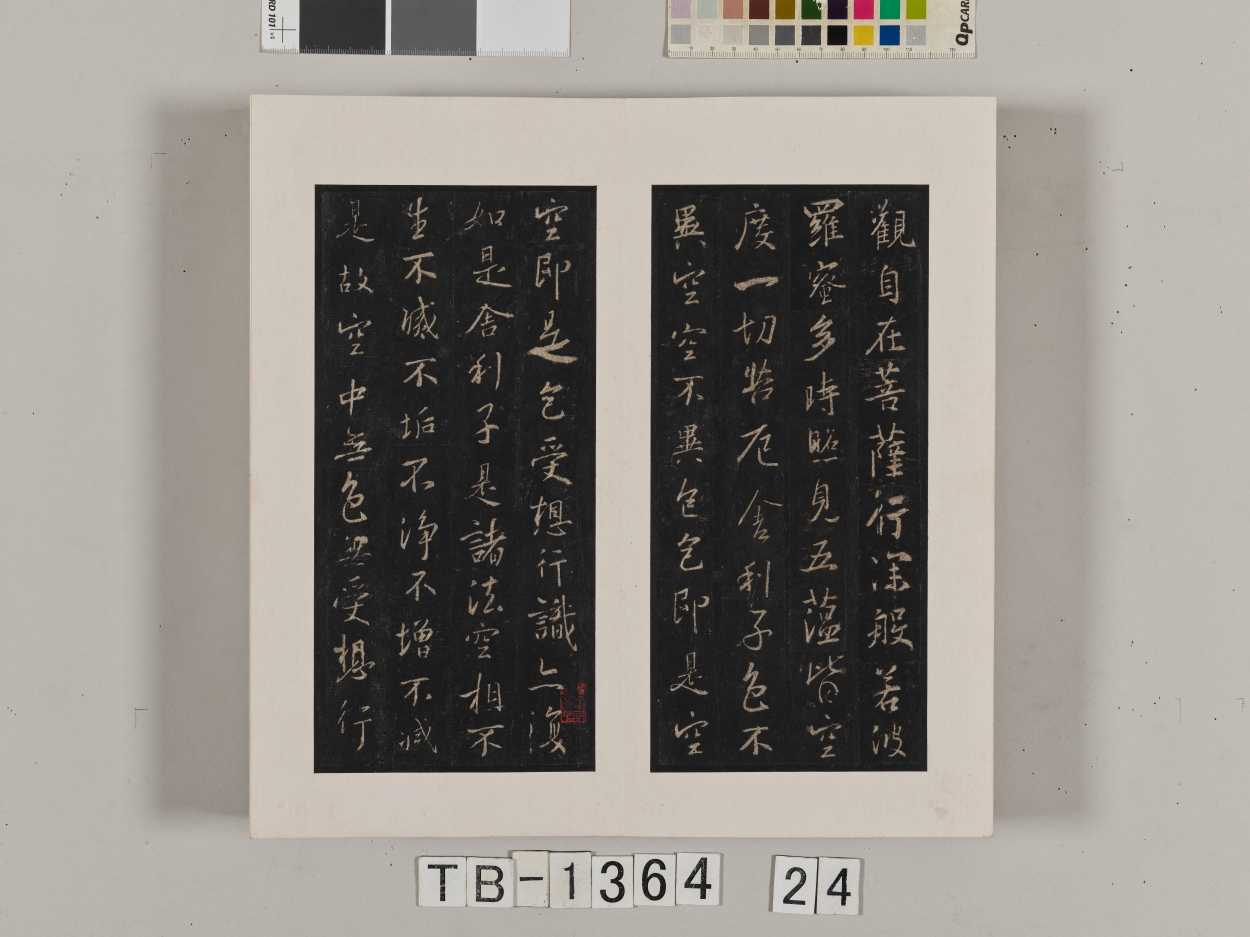 觀自在菩薩行深般若波
羅蜜多時照見五蕰皆空
度一切苦厄舍利子色不
異空空不異色色即是空
空即是色受想行識亦復
如是舍利子是諸法空相不
生不滅不垢不淨不增不減
是故空中無色無受想行
TB-1364 24
QPCARD 101 v4
QPCARD